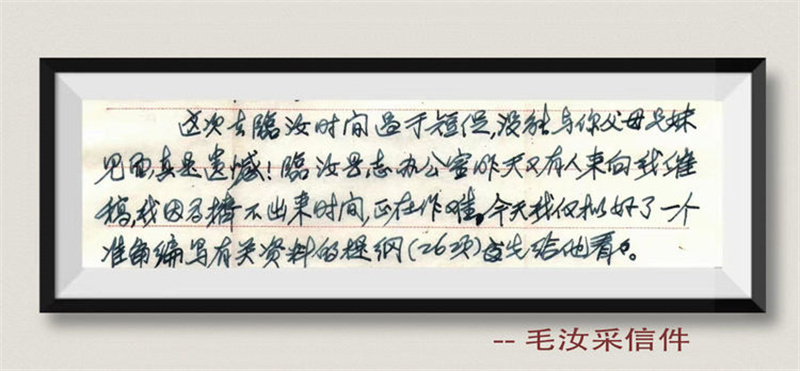 这次去臨汝时间过于短促,没能与你父母兄妹
见面,真是遗憾!臨汝县志办公室昨天又有人来向我催
稿,我因为擠不出来时间,正在作难。今天我仅拟好了一个
准备编写有关资料的提纲(26项)首先给他看了。
-- 毛汝采信件